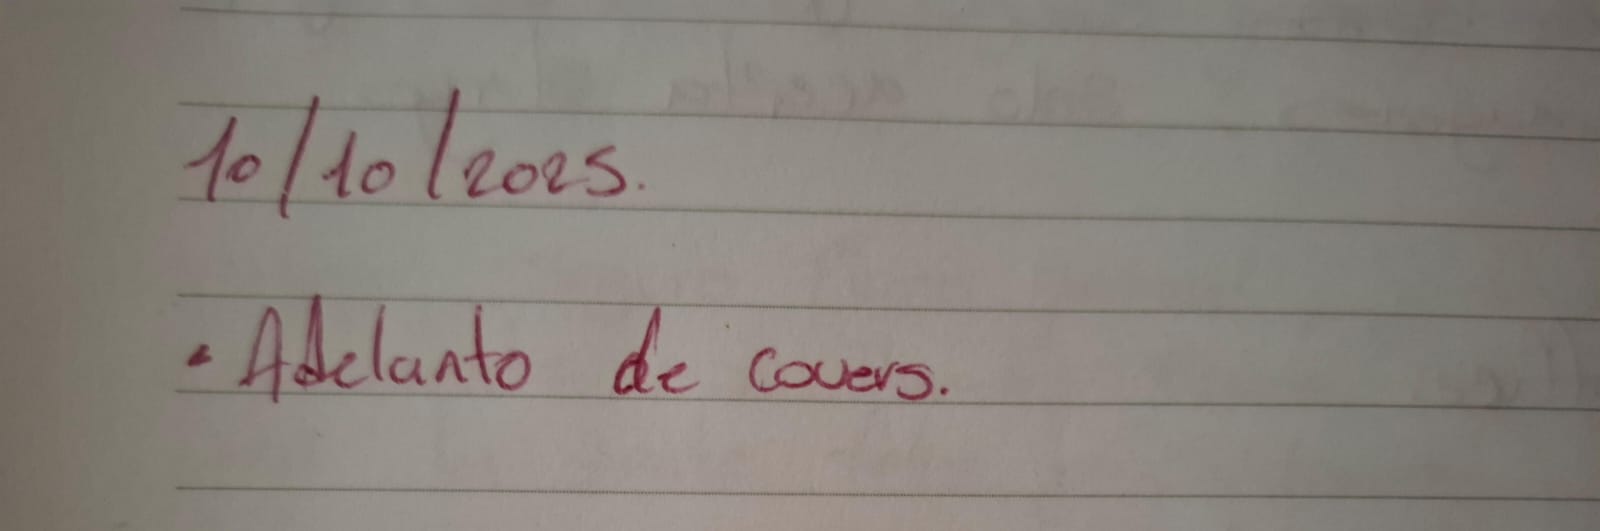 10/10/2025.
• Adelanto de covers.